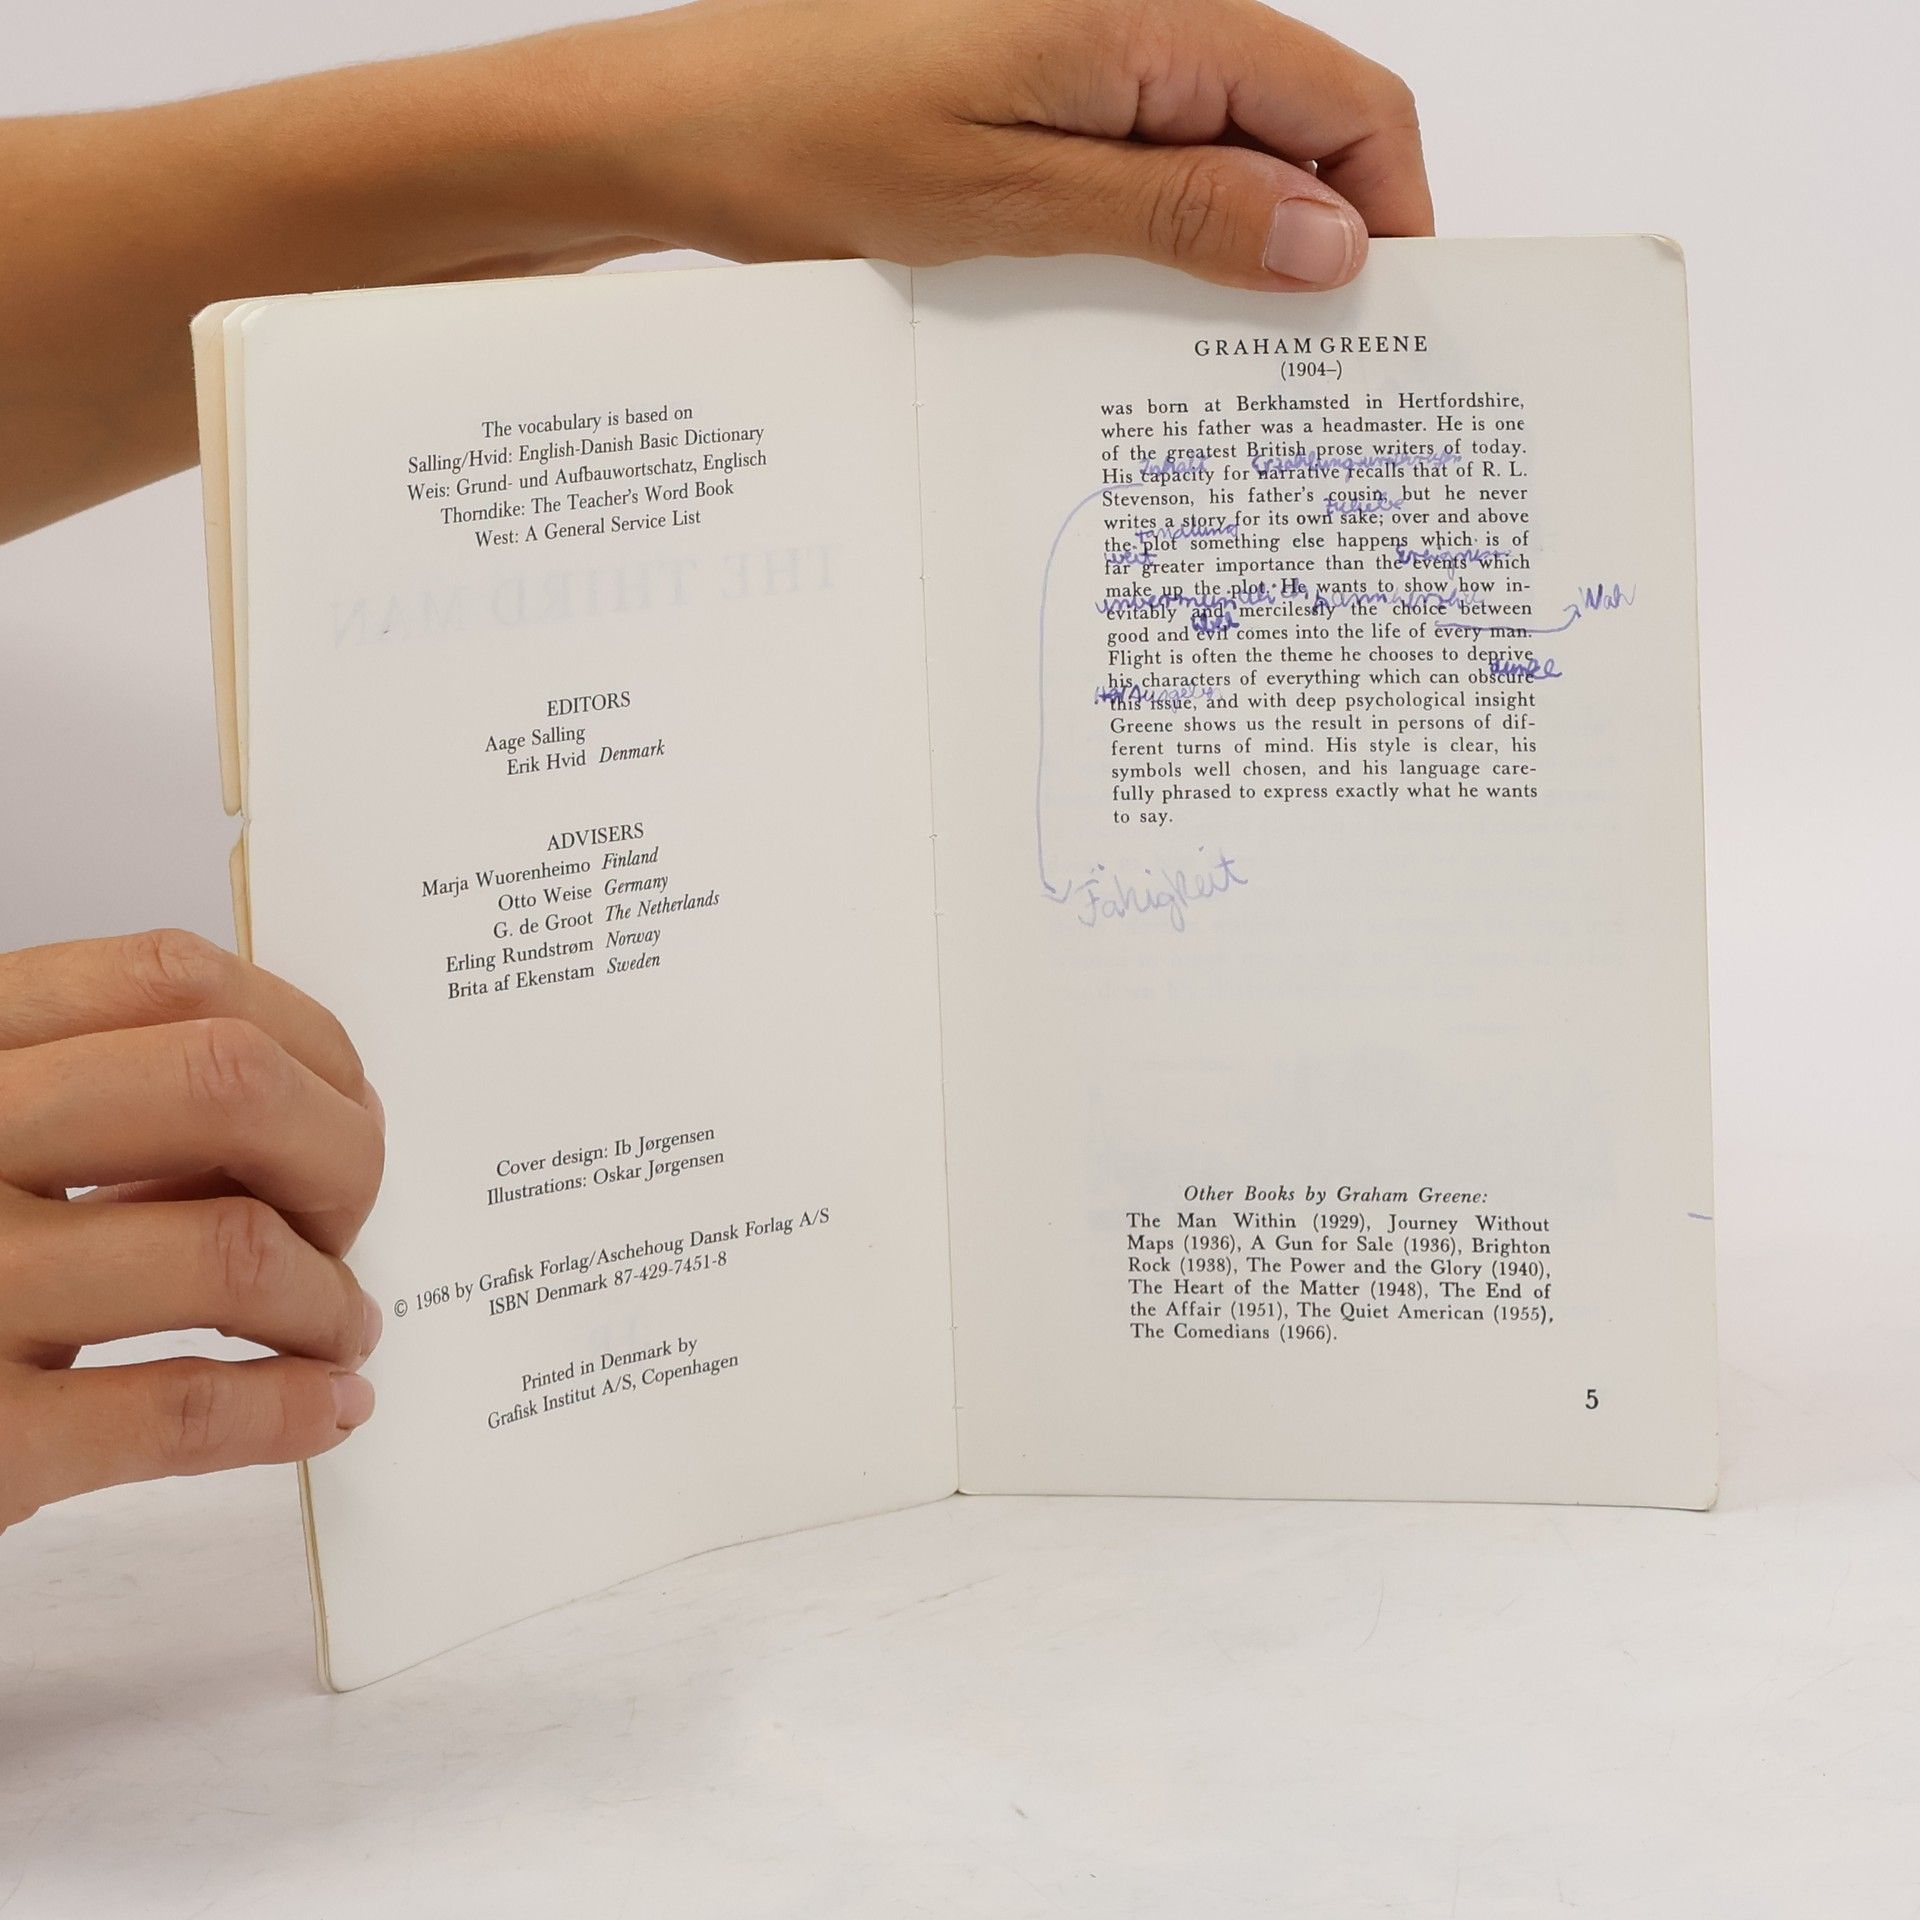 The vocabulary is based on
Salling/Hvid: English-Danish Basic Dictionary
Weis: Grund- und Aufbauwortschatz, Englisch
Thorndike: The Teacher's Word Book
West: A General Service List
THE THIRD MAN
EDITORS
Aage Salling
Erik Hvid Denmark
ADVISERS
Marja Wuorenheimo Finland
Otto Weise Germany
G. de Groot The Netherlands
Erling Rundstrøm Norway
Brita af Ekenstam Sweden
Cover design: Ib Jørgensen
Illustrations: Oskar Jørgensen
© 1968 by Grafisk Forlag/Aschehoug Dansk Forlag A/S
ISBN Denmark 87-429-7451-8
Printed in Denmark by
Grafisk Institut A/S, Copenhagen
GRAHAM GREENE
(1904–)
was born at Berkhamsted in Hertfordshire,
where his father was a headmaster. He is one
of the greatest British prose writers of today.
Inhalt
His capacity for narrative recalls that of R. L.
Stevenson, his father's cousin, but he never
zuliebe
writes a story for its own sake; over and above
Handlung
the plot something else happens which is of
weit
far greater importance than the events which
make up the plot. He wants to show how in-
evitably and mercilessly the choice between
Wah
übel
good and evil comes into the life of every man.
Flight is often the theme he chooses to deprive
dunkel
his characters of everything which can obscure
this issue, and with deep psychological insight
Greene shows us the result in persons of dif-
ferent turns of mind. His style is clear, his
symbols well chosen, and his language care-
fully phrased to express exactly what he wants
to say.
Fähigkeit
Other Books by Graham Greene:
The Man Within (1929), Journey Without
Maps (1936), A Gun for Sale (1936), Brighton
Rock (1938), The Power and the Glory (1940),
The Heart of the Matter (1948), The End of
the Affair (1951), The Quiet American (1955),
The Comedians (1966).
5